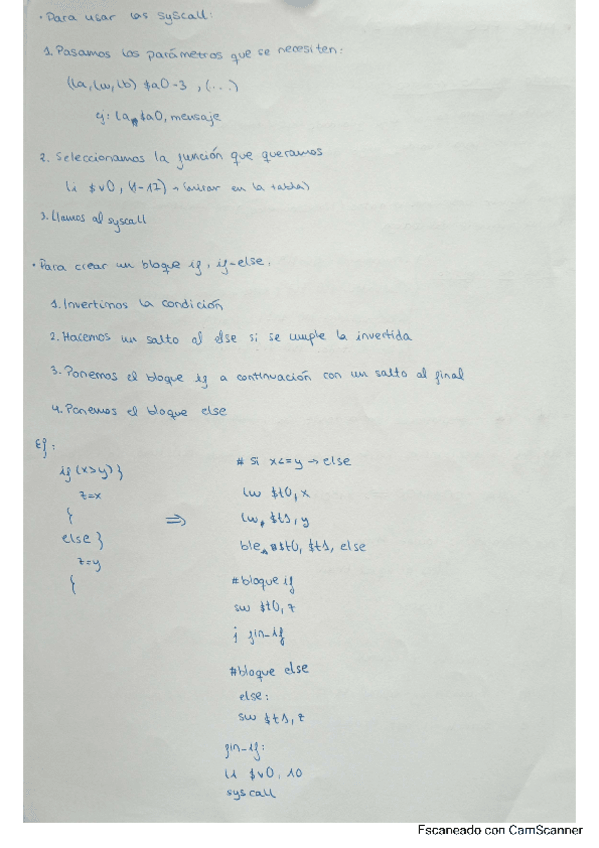 · Para usar las syscall:
1. Pasamos los parámetros que se necesiten:
(la, lw, lb) $a0-3, (...)
ej: la $a0, mensaje
2. Seleccionamos la función que queramos
li $v0, (1-12) → (mirar en la tabla)
3. Llamos al syscall
· Para crear un bloque if, if-else.
1. Invertimos la condición
2. Hacemos un salto al else si se cumple la invertida
3. Ponemos el bloque if a continuación con un salto al final
4. Ponemos el bloque else
Ej:
if (x>y) }
z=x
{
else }
z=y
{
⇒
# Si x<=y → else
lw $t0, x
lw $t1, y
ble $t0, $t1, else
#bloque if
sw $t0, z
j fin-if
#bloque else
else:
sw $t1, z
fin-if:
li $v0, 10
syscall
Escaneado con CamScanner